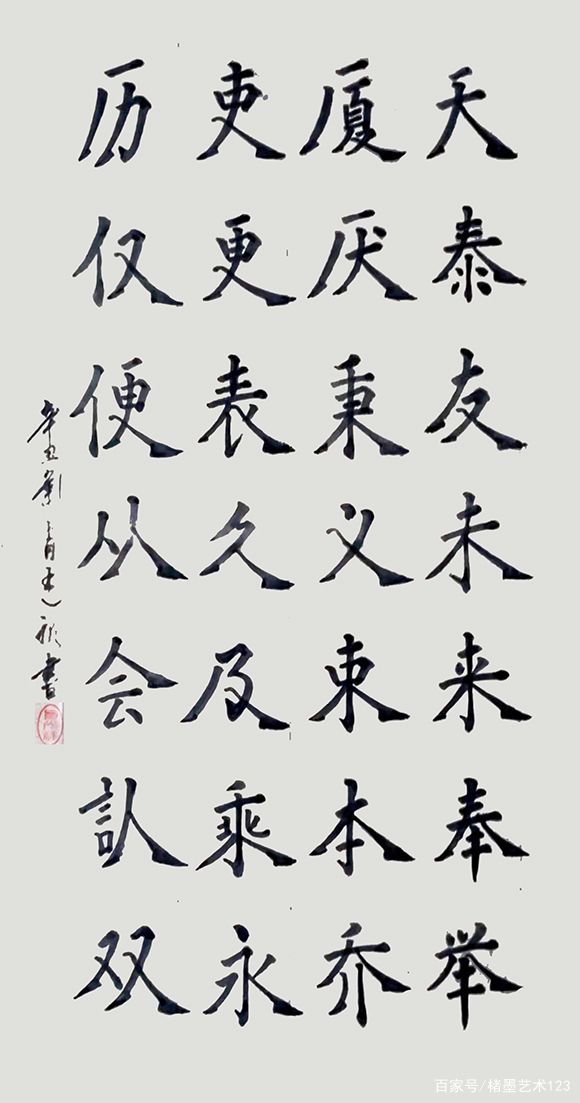 天泰友未来奉举
厦厌秉义束本乔
吏更表久及乘永
历仅便从会双
辛丑 書
百家号/楮墨艺术123